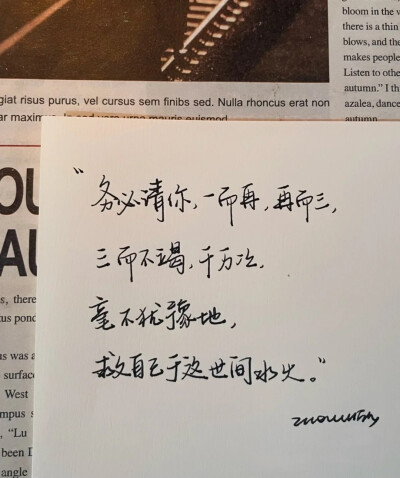 bloom in the
there is a thin
blows, and the
makes people
Listen to othe
autumn." I th
azalea, dance
autumn
giat risus purus, vel cursus sem finibs sed. Nulla rhoncus erat non
ar maxim
s, there
us pond
us was a
surfac
West
mpus s
, "Lu
been D
angle
"务必请你,一而再,再而三,
三而不竭,千万次,
毫不犹豫地,
救自己于这世间水火。"